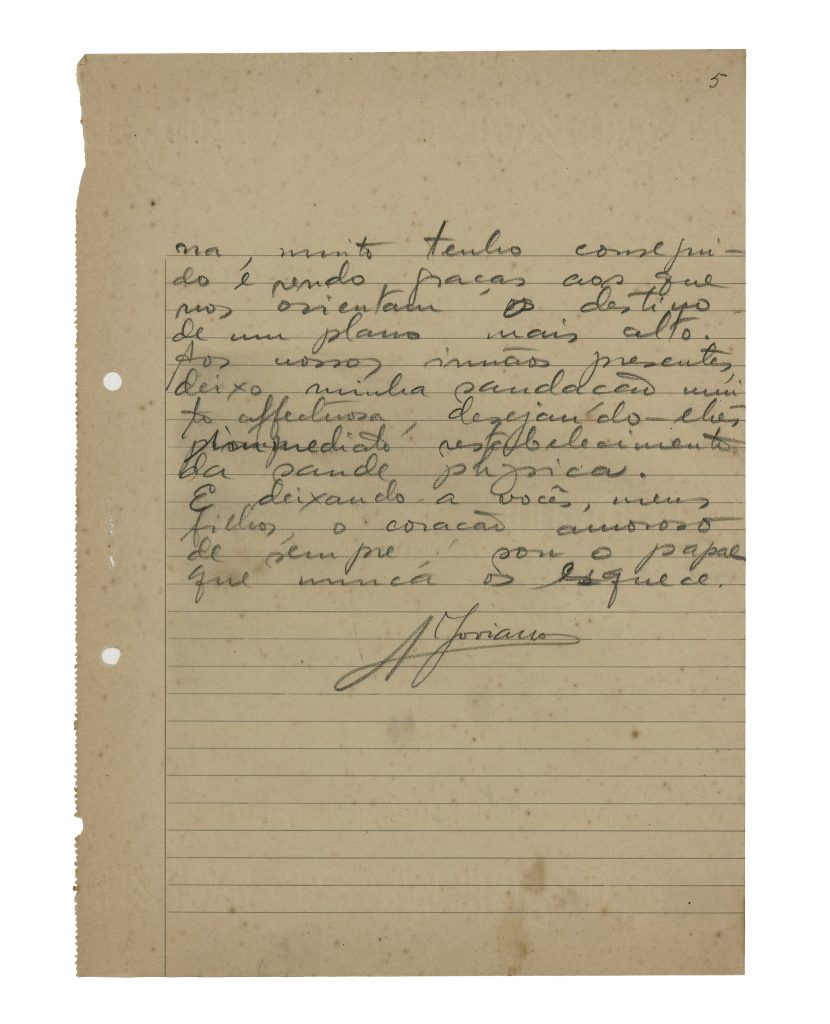 5
na, muito tenho consegui-
do e rendo graças aos que
nos orientam o destino
de um plano mais alto.
Aos nossos irmãos presentes,
deixo minha saudação mui
to affectuosa, desejando-lhes
immediato restabelecimento
da saude physica.
E deixando a vocês, meus
filhos, o coração amoroso
de sempre, sou o papae
que nunca os esquece.
A Joviano